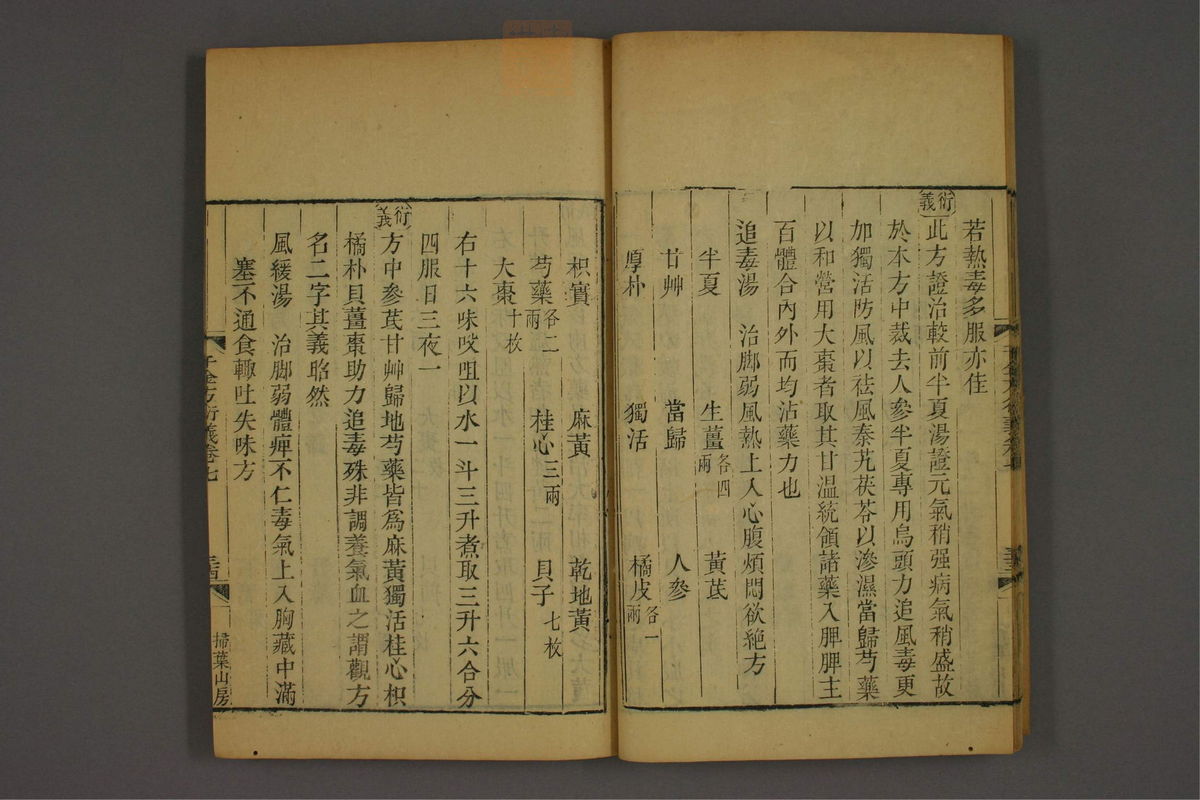 若熱毒多服亦佳
衍義
此方證治較前半夏湯證元氣稍强病氣稍盛故
於本方中裁去人參半夏專用烏頭力追風毒更
加獨活防風以祛風秦艽茯苓以滲濕當歸芍藥
以和營用大棗者取其甘溫統領諸藥入脾脾主
百體合內外而均沾藥力也
追毒湯　治脚弱風熱上入心腹煩悶欲絶方
半夏　生薑各四兩　黃芪
甘艸　當歸　人參
厚朴　獨活　橘皮各一兩
枳實　麻黃　乾地黃
芍藥各二兩　桂心三兩　貝子七枚
大棗十枚
右十六味㕮咀以水一斗三升煮取三升六合分
四服日三夜一
衍義
方中參芪甘艸歸地芍藥皆爲麻黃獨活桂心枳
橘朴貝薑棗助力追毒殊非調養氣血之謂觀方
名二字其義昭然
風緩湯　治脚弱體痺不仁毒氣上入胸藏中滿
塞不通食輙吐失味方
千金方衍義卷七
掃葉山房